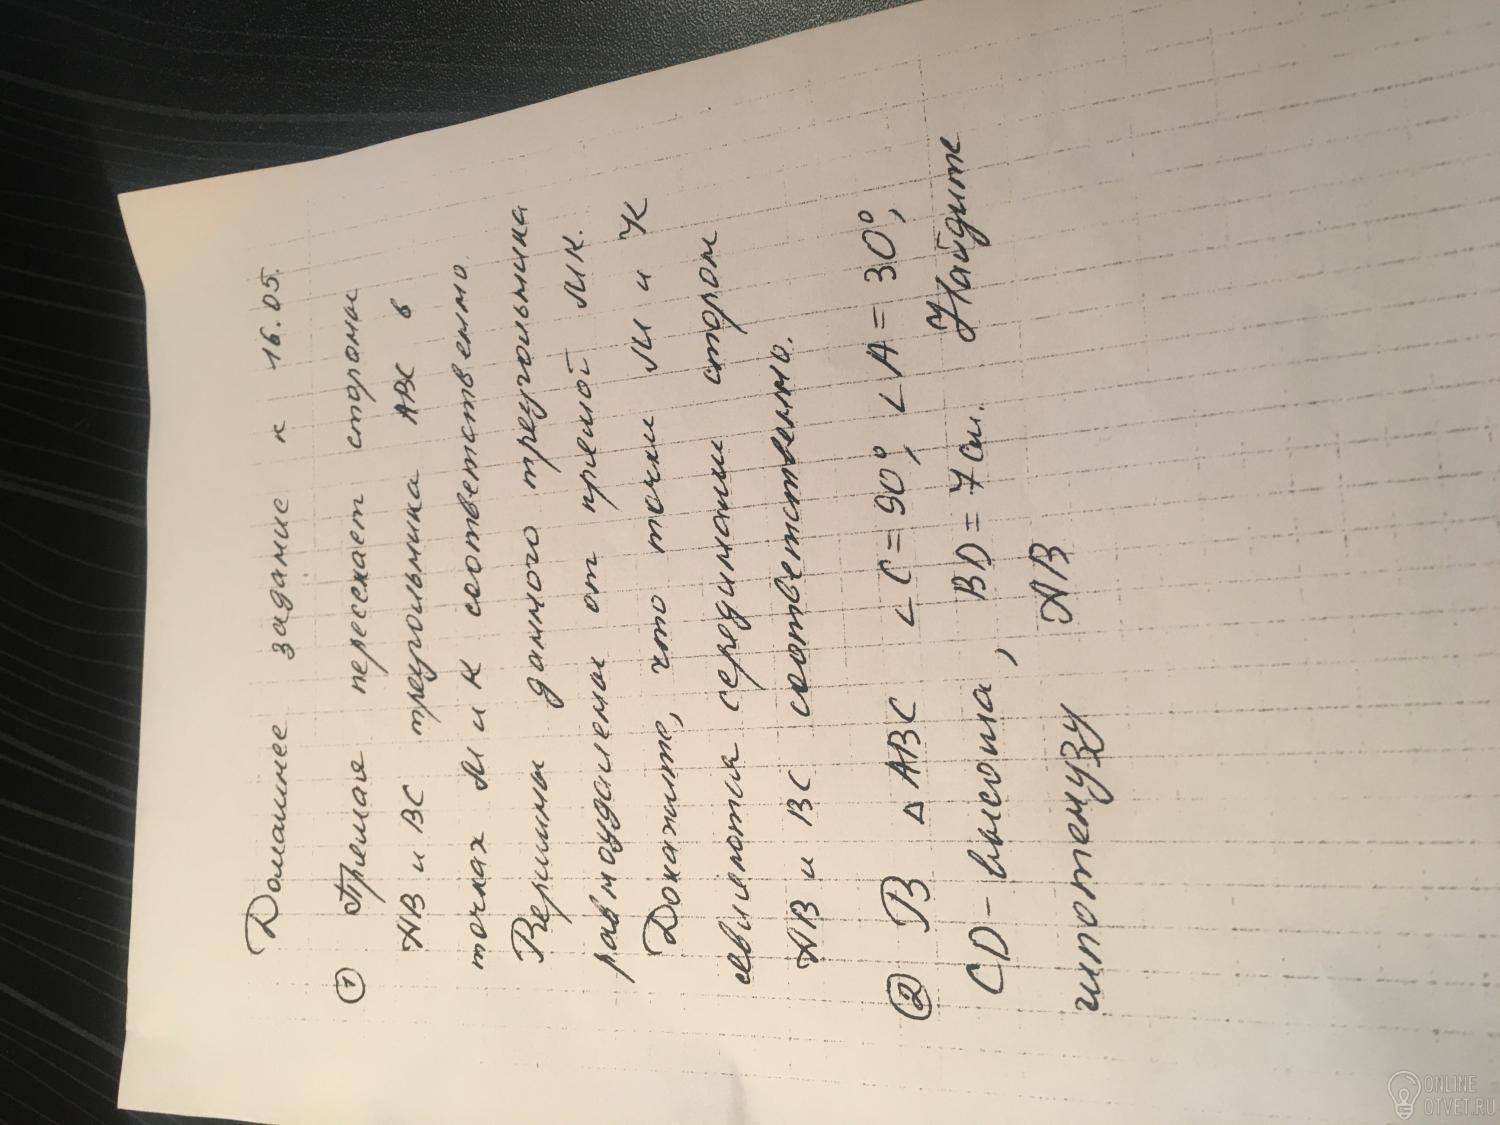 Домашнее задание к 16.05.
① Прямая пересекает стороны
АВ и ВС треугольника АВС в
точках М и К соответственно.
Вершины данного треугольника
равноудалены от прямой МК.
Докажите, что точки М и К
являются серединами сторон
АВ и ВС соответственно.
② В △ АВС ∠C = 90°, ∠A = 30°,
CD – высота, BD = 7 см. Найдите
гипотенузу АВ
ONLINE
OTVET.RU